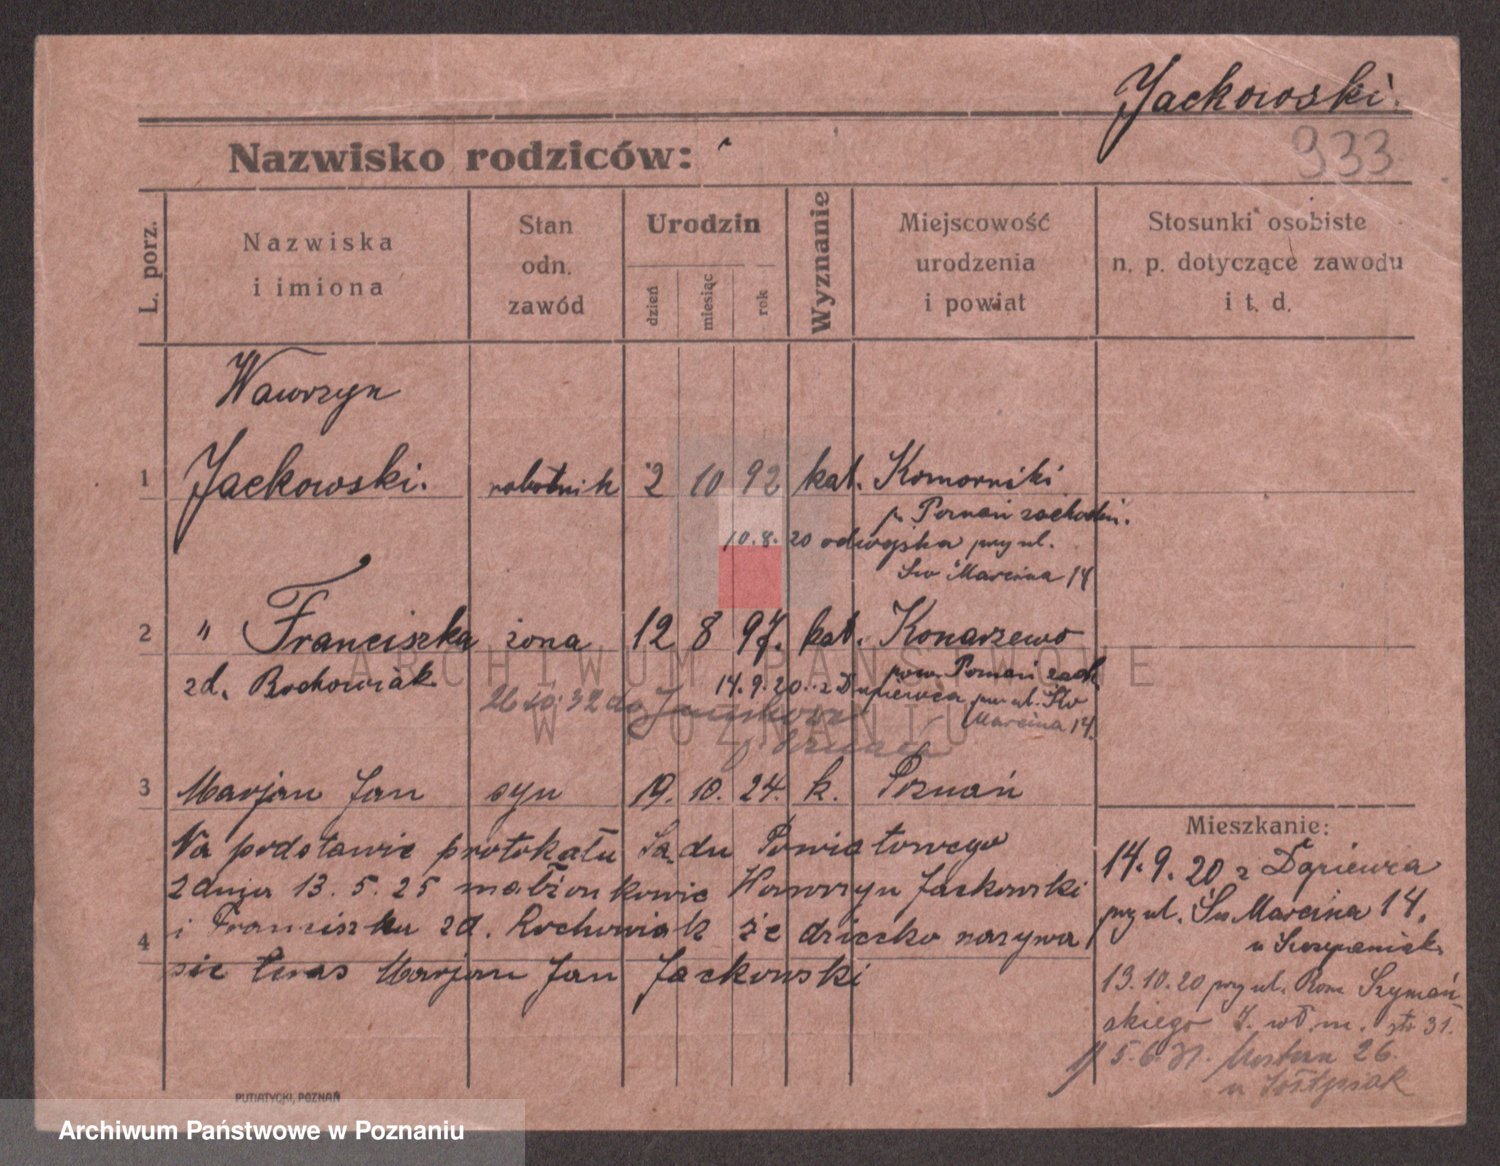 Jackowski.
933
Nazwisko rodziców:
L. porz.
Nazwiska
i imiona
Stan
odn.
zawód
Urodzin
dzień
miesiąc
rok
Wyznanie
Miejscowość
urodzenia
i powiat
Stosunki osobiste
n. p. dotyczące zawodu
i t. d.
Wawrzyn
1 Jackowski. robotnik 2 10 92 kat. Komorniki
p. Poznań zachodni.
10. 8. 20 od wojska przy ul.
Św Marcina 14
2 " Franciszka żona 12 8 97. kat. Konarzewo
zd. Rochowiak
pow. Poznań zach
14. 9. 20. z przy ul. Św
Marcina 14.
26 10. 32 do
3 Marjan Jan syn 19. 10. 24. k. Poznań
Na podstawie protokału Sądu Powiatowego
z dnia 13. 5. 25 małżonkowie Wawrzyn Jackowski
i Franciszka zd. Rochowiak że dziecko nazywa
4
się teras Marjan Jan Jackowski
Mieszkanie:
14. 9. 20 z
przy ul. Św. Marcina 14.
u Szczepaniak
19. 10. 20 przy ul. Rom. Szymań-
skiego 7. wł. m. str 31.
5. 6. 31. Mostowa 26.
u
PUTIATYCKI, POZNAŃ
ARCHIWUM PAŃSTWOWE
W POZNANIU
Archiwum Państwowe w Poznaniu